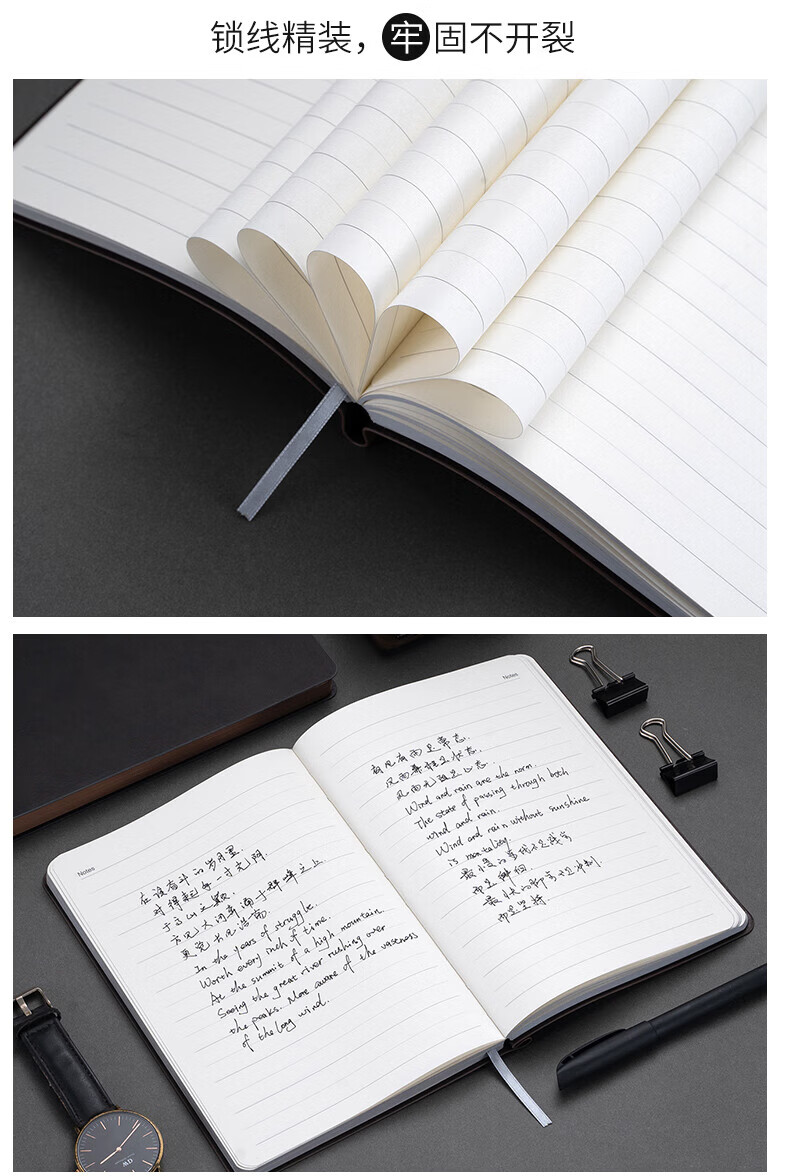 锁线精装，牢固不开裂
Notes
在谁奋斗的岁月里.
对得起每一寸光阴.
于高山之巅.
方见大河奔涌于群峰之上.
更觉长风浩荡.
In the years of struggle.
Worth every inch of time.
At the summit of a high mountain.
Seeing the great river rushing over
the peaks. More aware of the vaseness
of the long wind.
Notes
有风有雨是常态.
风雨兼程是状态.
风雨无阻是心态.
Wind and rain are the norm.
The state of passing through both
wind and rain.
Wind and rain without sunshine
is mentality.
最慢的步伐不是跬步
而是徘徊.
最快的脚步不是冲刺.
而是坚持.